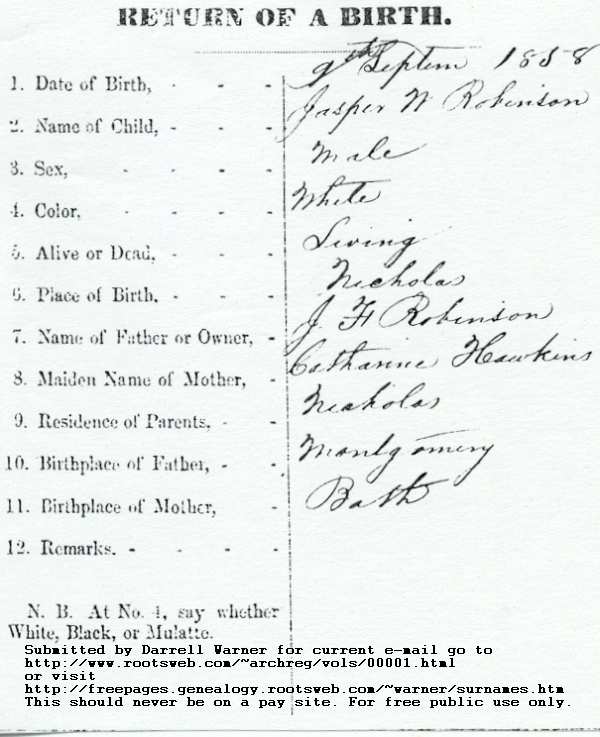 RETURN OF A BIRTH.
1. Date of Birth, - - - 9th Septem 1858
2. Name of Child, - - - Jasper W Robinson
3. Sex, - - - - Male
4. Color, - - - - White
5. Alive or Dead, - - - Living
6. Place of Birth, - - - Nicholas
7. Name of Father or Owner, - J. F Robinson
8. Maiden Name of Mother, - Catharine Hawkins
9. Residence of Parents, - - Nicholas
10. Birthplace of Father, - - Montgomery
11. Birthplace of Mother, - Bath
12. Remarks. - - - -
N. B. At No. 4, say whether
White, Black, or Mulatto.
Submitted by Darrell Warner for current e-mail go to
http://www.rootsweb.com/~archreg/vols/00001.html
or visit
http://freepages.genealogy.rootsweb.com/~warner/surnames.htm
This should never be on a pay site. For free public use only.